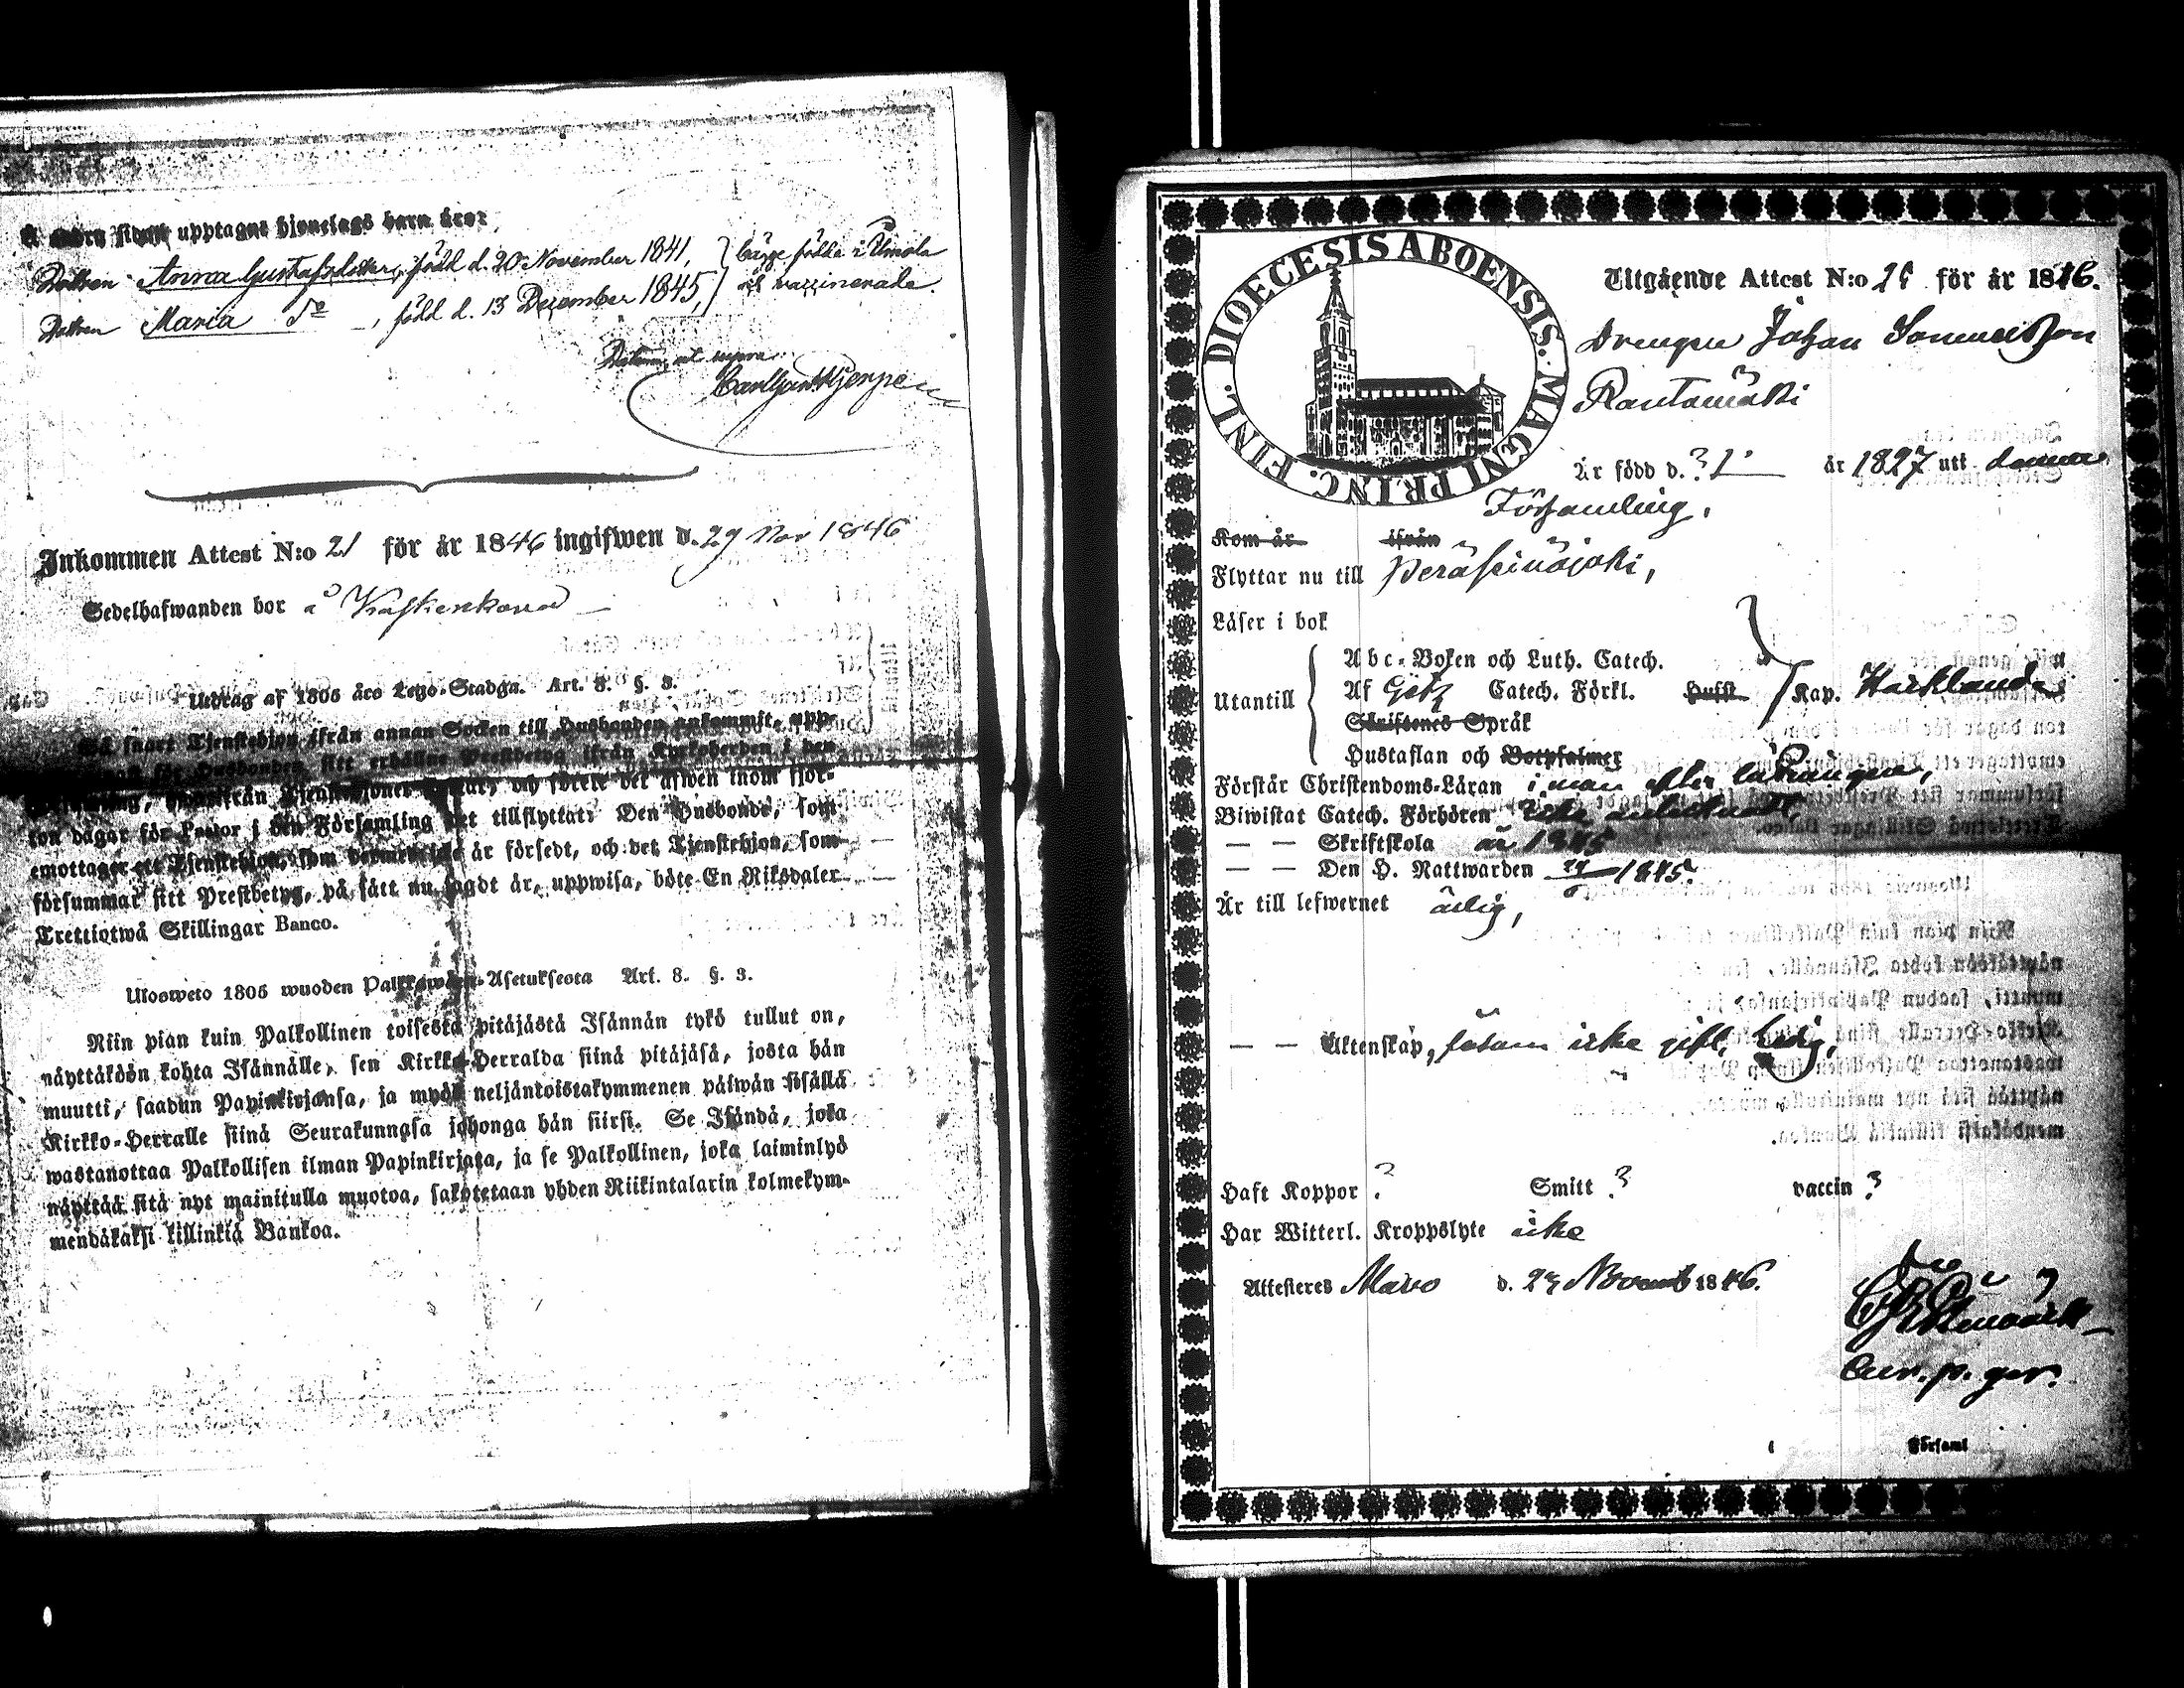 å andra sidan upptagne hjonelags barn äro:
Dottren Anna Gustafsdotter, född d. 20 November 1841, } bägge födde i Ilmola
Dottren Maria Do , född d. 13 December 1845, } och vaccinerade.
Datum ut supra.
Inkommen Attest N:o 21 för år 1846 ingifwen d. 29 Nov 1846
Sedelhafwanden bor å
Utdrag af 1805 års Lego-Stadga. Art. 8. §. 3.
Så snart Tjenstehjon ifrån annan Socken till Husbonden ankommit, upp-
för Husbonden sitt erhållne Prestbetyg ifrån Kyrkoherden i den
Församling, hwarifrån Tjenstehjonet flyttat, och förete det äfwen inom fjor-
ton dagar för Pastor i den Församling det tillflyttat. Den Husbonde, som
emottager ett Tjenstehjon, som dermed icke är försedt, och det Tjenstehjon, som
försummar sitt Prestbetyg, på sätt nu sagdt är, uppwisa, böte En Riksdaler
Trettiotwå Skillingar Banco.
Ulosweto 1805 wuoden Palkkawäen-Asetuksesta Art. 8. §. 3.
Niin pian kuin Palkollinen toisesta pitäjästä Isännän tykö tullut on,
näyttäköön kohta Isännälle, sen Kirkko-Herralda siinä pitäjäsä, josta hän
muutti, saadun Papinkirjansa, ja myös neljäntoistakymmenen päiwän sisällä
Kirkko-Herralle siinä Seurakunnasa johonga hän siirsi. Se Isändä, joka
wastanottaa Palkollisen ilman Papinkirjata, ja se Palkollinen, joka laiminlyö
näyttää sitä nyt mainitulla muotoa, sakotetaan yhden Riikintalarin kolmekym-
mendäkaksi killinkiä Bankoa.
DIOECESIS ABOENSIS. MAGNI PRINC. FINL.
Utgående Attest N:o för år 1846.
Drengen Johan Samuelsson
Rantamäki
Är född d. ? 1 år 1827 uti denna
Församling,
Kom år ifrån
Flyttar nu till Peräseinäjoki,
Läser i bok
Utantill
Abc-Boken och Luth. Catech.
Af Götz Catech. Förkl. Hufst Kap. Harklande
Skriftenes Språk
Hustaflan och Botpsalmer
Förstår Christendoms-Läran i mån efter läsningen,
Biwistat Catech. Förhören icke antecknadt,
— — Skriftskola år 1845
— — Den H. Nattwarden 1845.
Är till lefwernet ärlig,
— — Äktenskap, såsom icke gift, ledig,
Haft Koppor ? Smitt ? vaccin ?
Har Witterl. Kroppslyte icke
Attesteres Alavo d. 29 Novemb 1846.
Församl